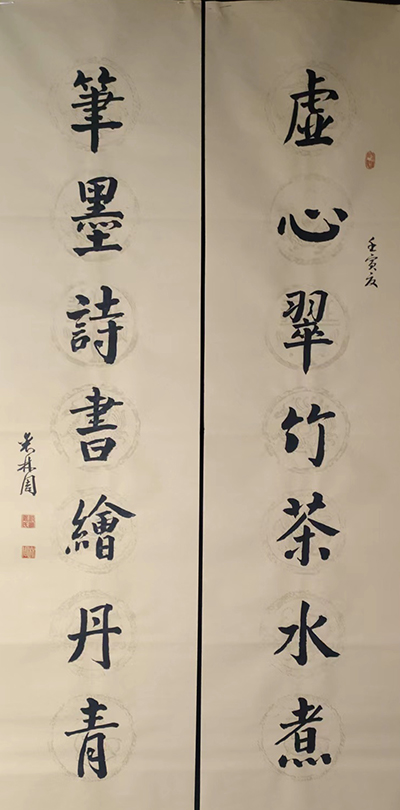 壬寅夏
虚心翠竹茶水煮
筆墨詩書繪丹青
林周